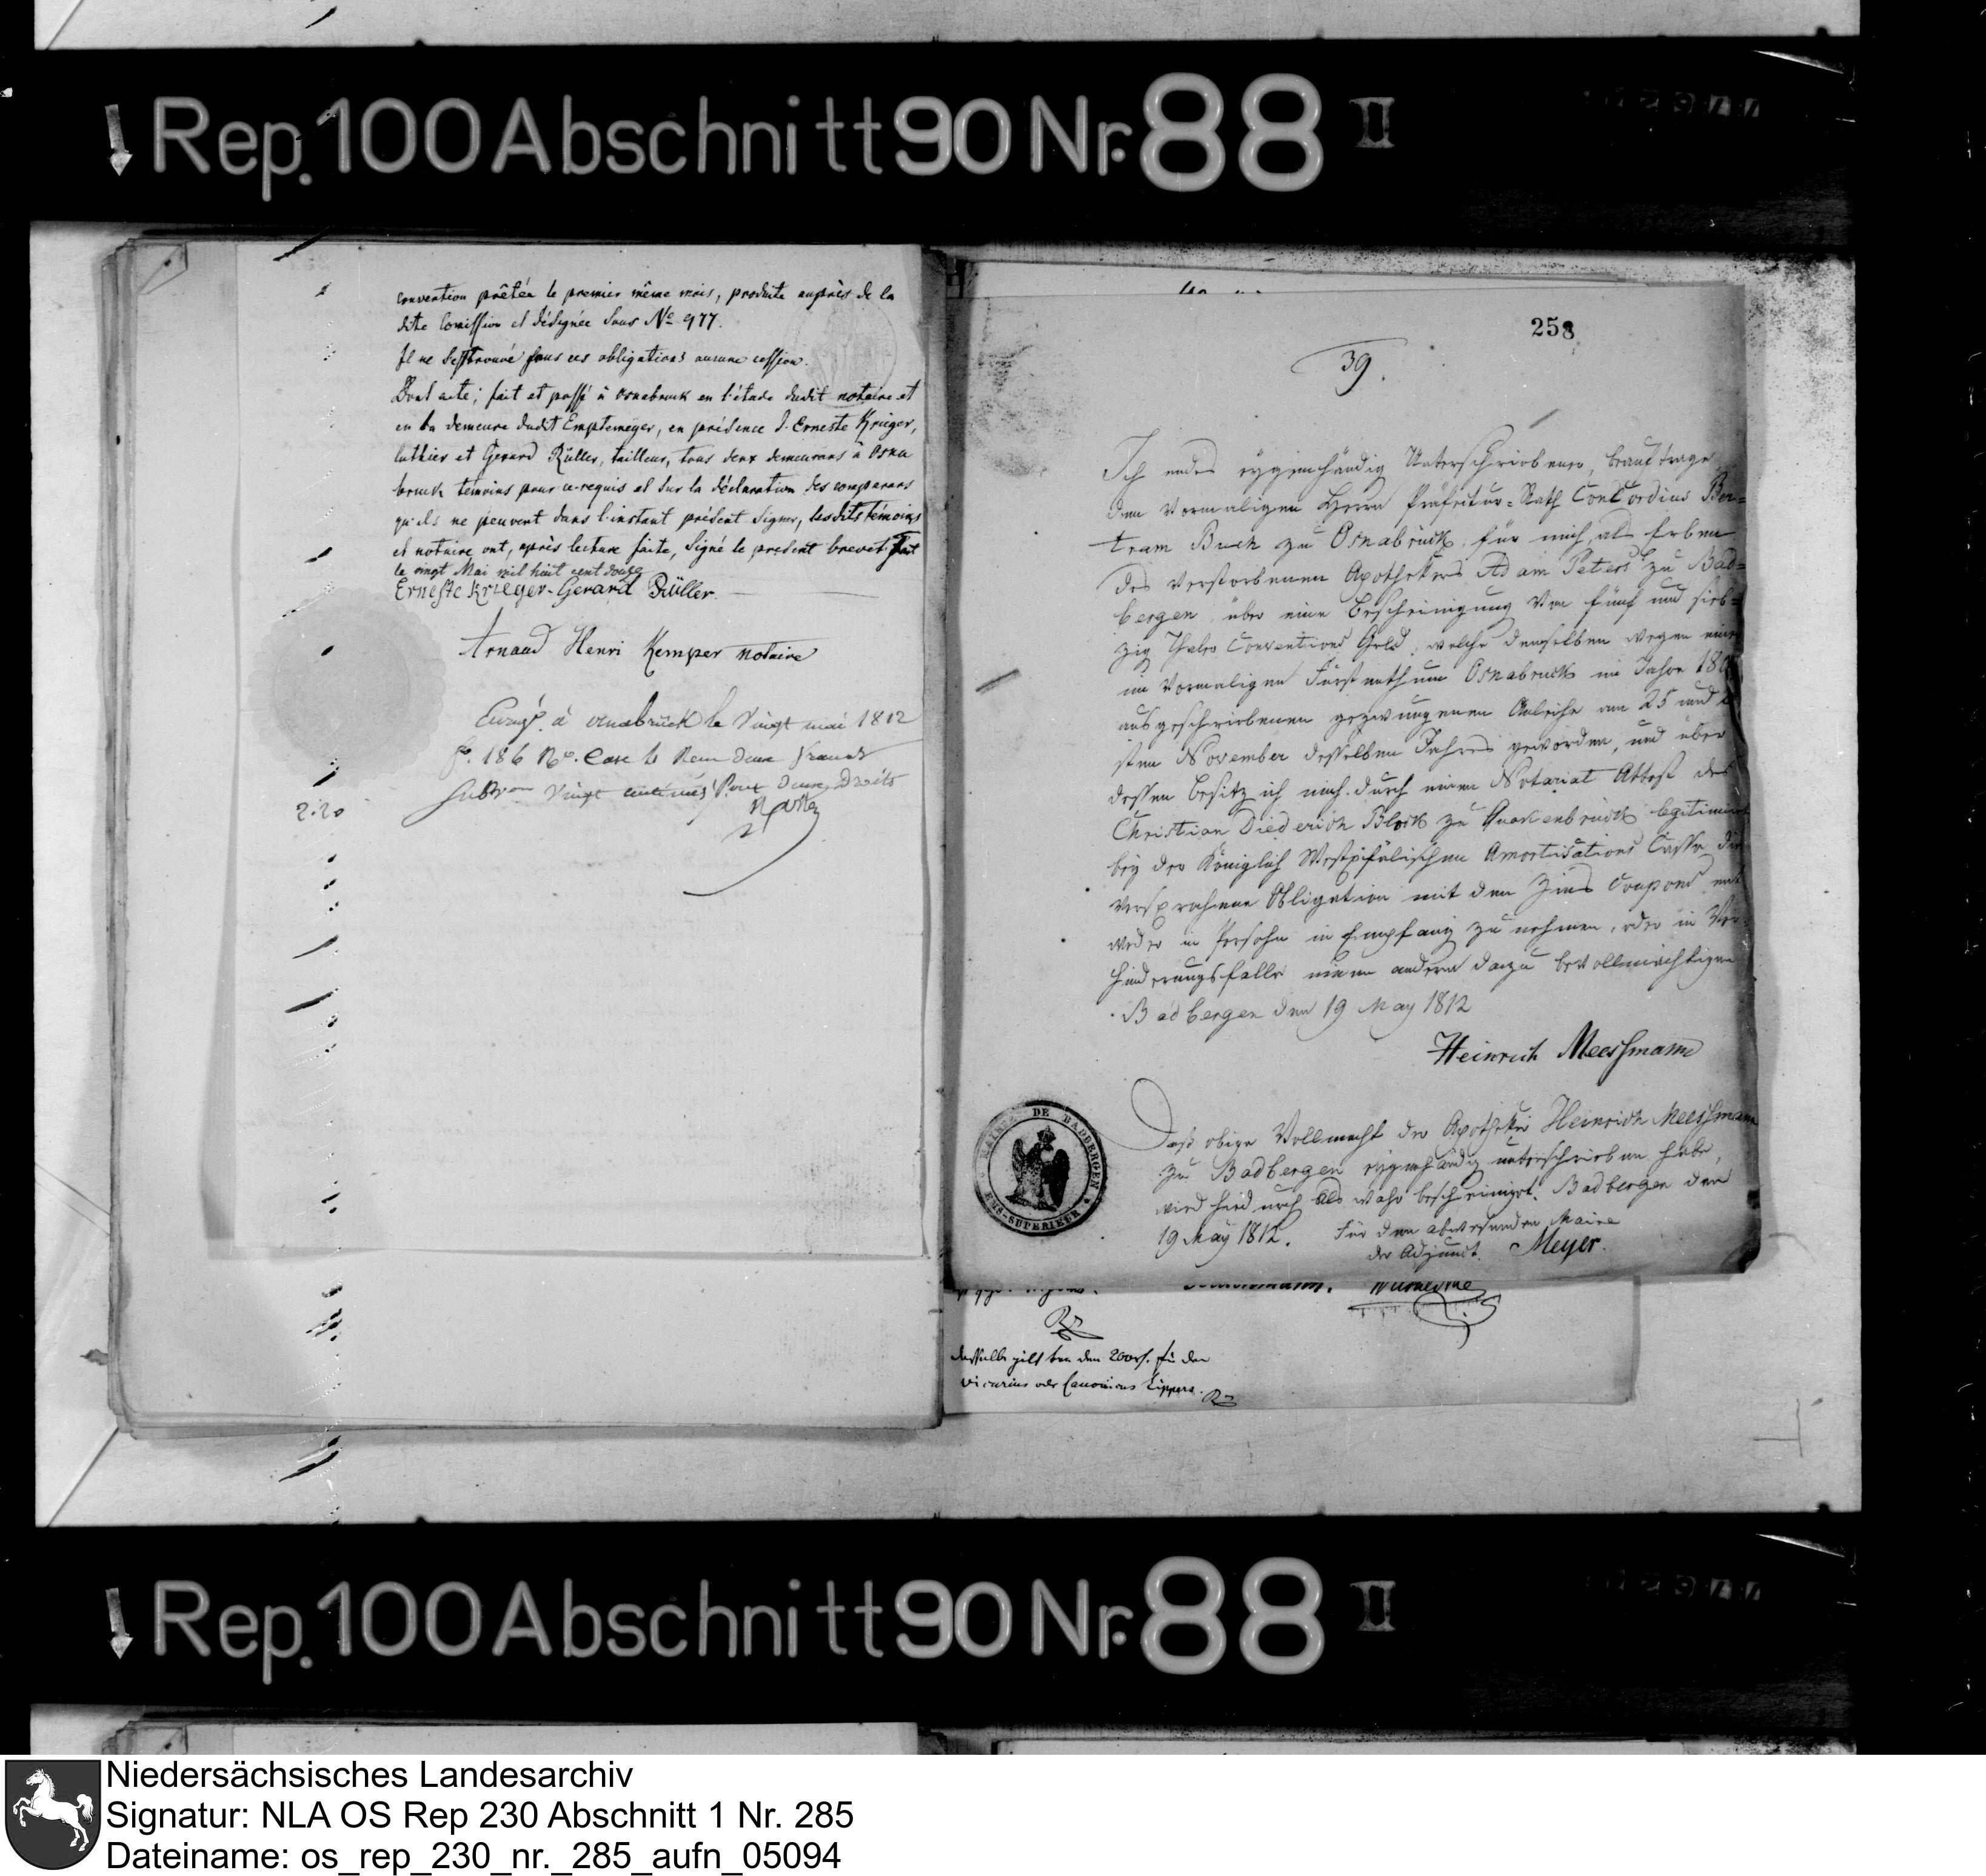 Rep. 100 Abschnitt 90 Nr. 88 II
convention prêtée le premier même mois, produite auprès de la
dite Comission et désignée sous No 977.
Il ne s'est trouvé sous ces obligations aucune cession.
Dont acte; fait et passé à Osnabruck en l'étude dudit notaire et
en la demeure dudit Emptemeyer, en présence d'Erneste Krieger,
luthier et Gerard Rüller, tailleur, tous deux demeurans à Osna
bruck témoins pour ce requis et sur la déclaration des comparans
qu'ils ne peuvent dans l'instant présent signer, lesdits témoins
et notaire ont, après lecture faite, signé le present brevet. fait
le vingt Mai mil huit cent douze
Erneste Krieger - Gerard Rüller
Arnaud Henri Kemper notaire
Enregé. à osnabrück le Vingt mai 1812
fo. 186 Ro. Case 6 Reçu deux francs
Subvon Vingt centimes Pour deux Droits
2.20
258
39.
Ich endes eygenhändig Unterschriebener, beauftrage
den vormaligen Herrn Präfectur-Rath ConCordius Ber=
tram Buch zu Osnabrück, für mich, als Erben
des verstorbenen Apothekers Adam Peters zu Bad=
bergen über eine Bescheinigung von fünf und sieb=
zig Thaler Conventions Geld, welche demselben wegen einer
im vormaligen Fürstenthum Osnabruck im Jahre 180
ausgeschriebenen gezwungenen Anleihe am 25 und
sten November desselben Jahres geworden, und über
dessen Besitz ich mich durch einen Notariat Attest des
Christian Diederich Block zu Quakenbrück legitimirt
bey der Königlich Westphälischen Amortisations Casse die
versprochene Obligation mit den Zins Coupons ent
weder in Persohn in Empfang zu nehmen, oder in Ver-
hinderungsfalle einen andern dazu bevollmächtigen
Badbergen den 19 May 1812
Heinrich Meessmann
Dass obige Vollmacht der Apotheker Heinrich Meessmann
zu Badbergen eygenhändig unterschrieben habe,
wird hiedurch als wahr bescheiniget. Badbergen den
19 May 1812. Für den abwesenden Maire
der Adjunct. Meyer.
MAIRIE DE BADBERGEN
EMS-SUPERIEUR
dasselbe gilt von den 200 rh. für den
Vicarius oder Canonicus Lippers.
Rep. 100 Abschnitt 90 Nr. 88 II
Niedersächsisches Landesarchiv
Signatur: NLA OS Rep 230 Abschnitt 1 Nr. 285
Dateiname: os_rep_230_nr._285_aufn_05094